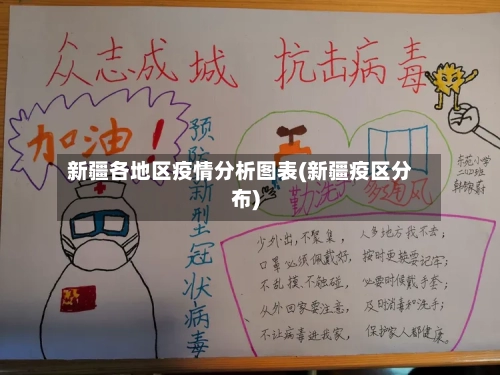 众志成城 抗击病毒
加油！
预防新型冠状病毒
勤洗手
多通风
东苑小学
二(4)班
新疆各地区疫情分析图表(新疆疫区分
布)
少外出，不聚集，人多地方我不去；
口罩必须佩戴好，按时更换要记牢；
不乱摸、不触碰，必要时候戴手套；
从外回家要注意，及时消毒和洗手；
不让病毒进我家，保护家人都健康。